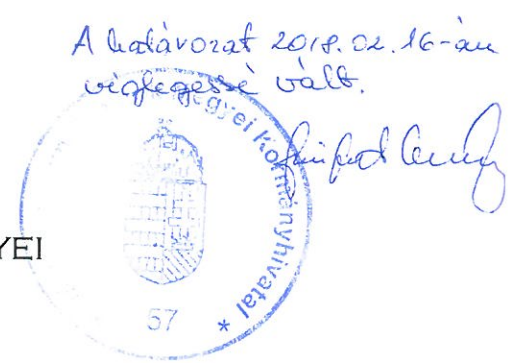 A határozat 2018. 02. 16-án
véglegessé vált.
gyei Kormányhivatal *
YEI
57